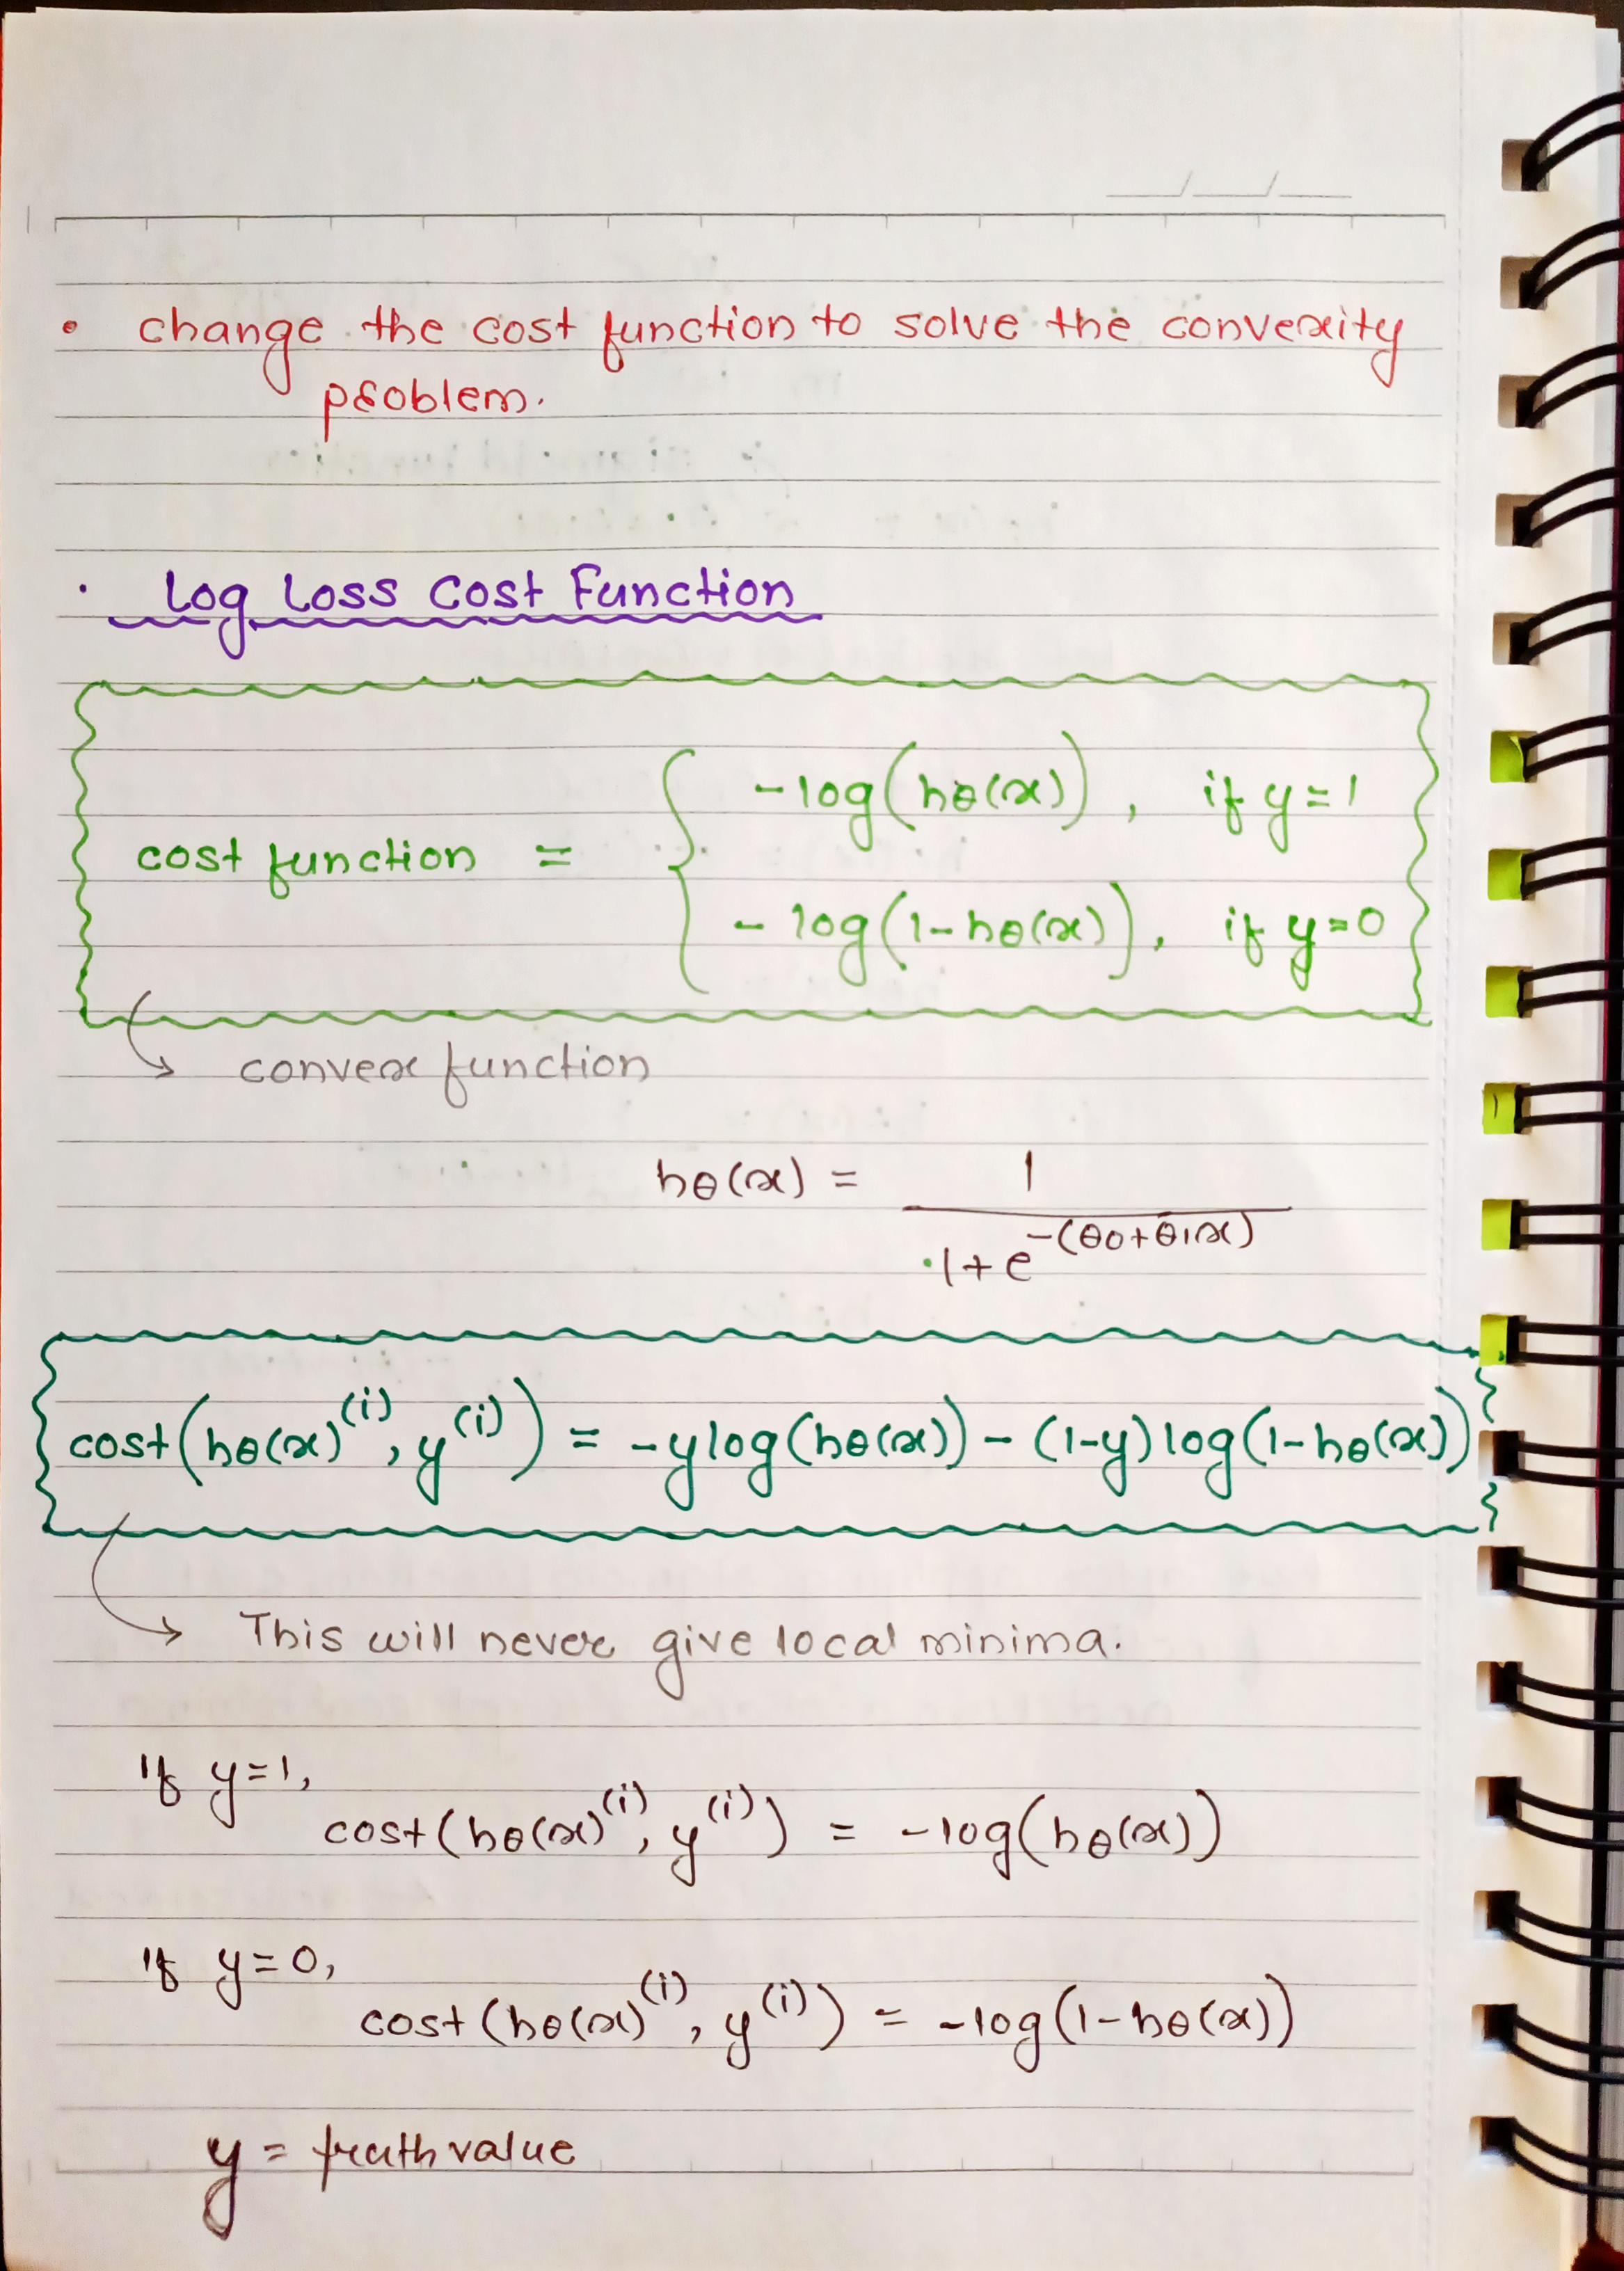 • change the cost function to solve the convexity
problem.
• Log Loss Cost Function
cost function = { -log(hθ(x)), if y=1
- log(1-hθ(x)), if y=0
convex function
hθ(x) = 1
1+e^-(θ0+θ1x)
cost(hθ(x)^(i), y^(i)) = -ylog(hθ(x)) - (1-y)log(1-hθ(x))
This will never give local minima.
If y=1,
cost(hθ(x)^(i), y^(i)) = -log(hθ(x))
If y=0,
cost(hθ(x)^(i), y^(i)) = -log(1-hθ(x))
y = truth value